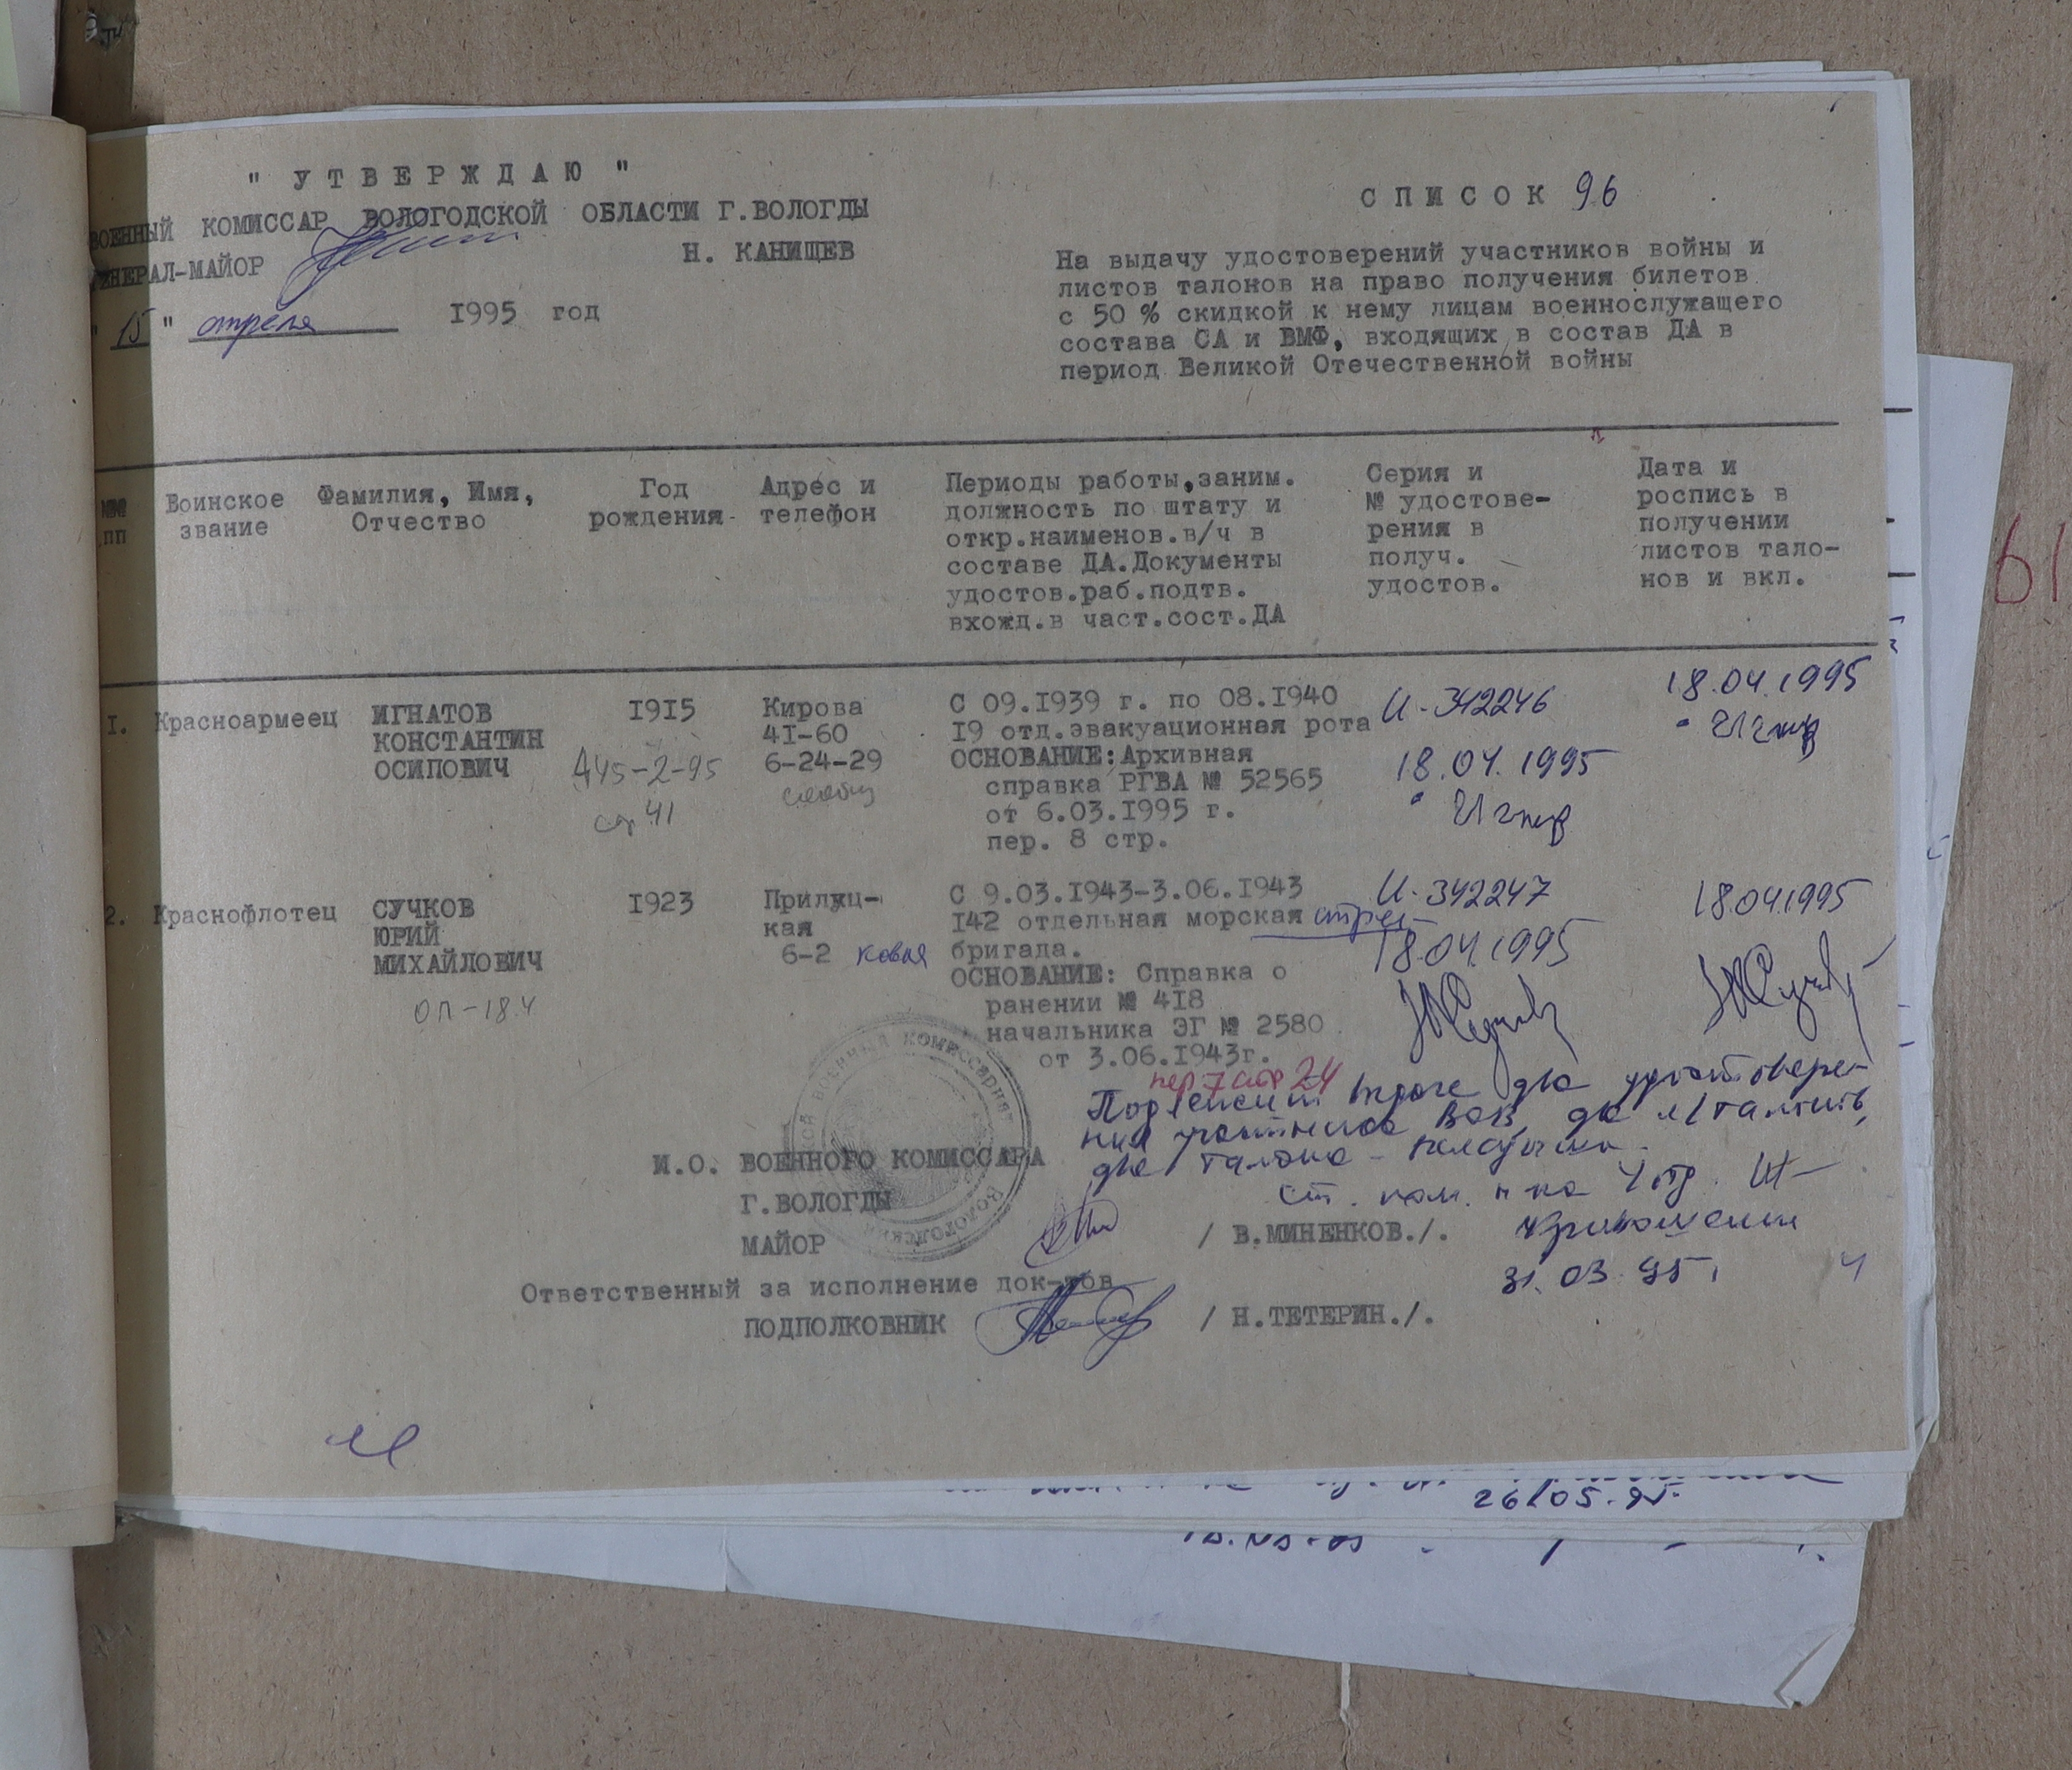 " УТВЕРЖДАЮ "
ВОЕННЫЙ КОМИССАР ВОЛОГОДСКОЙ ОБЛАСТИ Г.ВОЛОГДЫ
ГЕНЕРАЛ-МАЙОР Н. КАНИЩЕВ
" 15 " апреля 1995 год
СПИСОК 96
На выдачу удостоверений участников войны и
листов талонов на право получения билетов
с 50 % скидкой к нему лицам военнослужащего
состава СА и ВМФ, входящих в состав ДА в
период Великой Отечественной войны
№№
пп
Воинское
звание
Фамилия, Имя,
Отчество
Год
рождения
Адрес и
телефон
Периоды работы,заним.
должность по штату и
откр.наименов.в/ч в
составе ДА.Документы
удостов.раб.подтв.
вхожд.в част.сост.ДА
Серия и
№ удостове-
рения в
получ.
удостов.
Дата и
роспись в
получении
листов тало-
нов и вкл.
I.
Красноармеец
ИГНАТОВ
КОНСТАНТИН
ОСИПОВИЧ
I9I5
А45-2-95
стр 41
Кирова
4I-60
6-24-29
С 09.I939 г. по 08.I940
I9 отд.эвакуационная рота
ОСНОВАНИЕ:Архивная
справка РГВА № 52565
от 6.03.I995 г.
пер. 8 стр.
И-342246
18.04.1995
18.04.1995
2.
Краснофлотец
СУЧКОВ
ЮРИЙ
МИХАЙЛОВИЧ
оп-18.4
I923
Прилуц-
кая
6-2
С 9.03.I943-3.06.I943
I42 отдельная морская стрел
ковая бригада.
ОСНОВАНИЕ: Справка о
ранении № 4I8
начальника ЭГ № 2580
от 3.06.I943г.
пер 7 стр 24
И-342247
18.04.1995
18.04.1995
Подлежит выдаче два удостовере-
ния участника ВОВ, два л/талонов,
два талона -
ст. пом. н-ка 4 отд.
31.03.95г
И.О. ВОЕННОГО КОМИССАРА
Г.ВОЛОГДЫ
МАЙОР / В.МИНЕНКОВ./.
Ответственный за исполнение док-тов
ПОДПОЛКОВНИК / Н.ТЕТЕРИН./.
26/05.95.
61